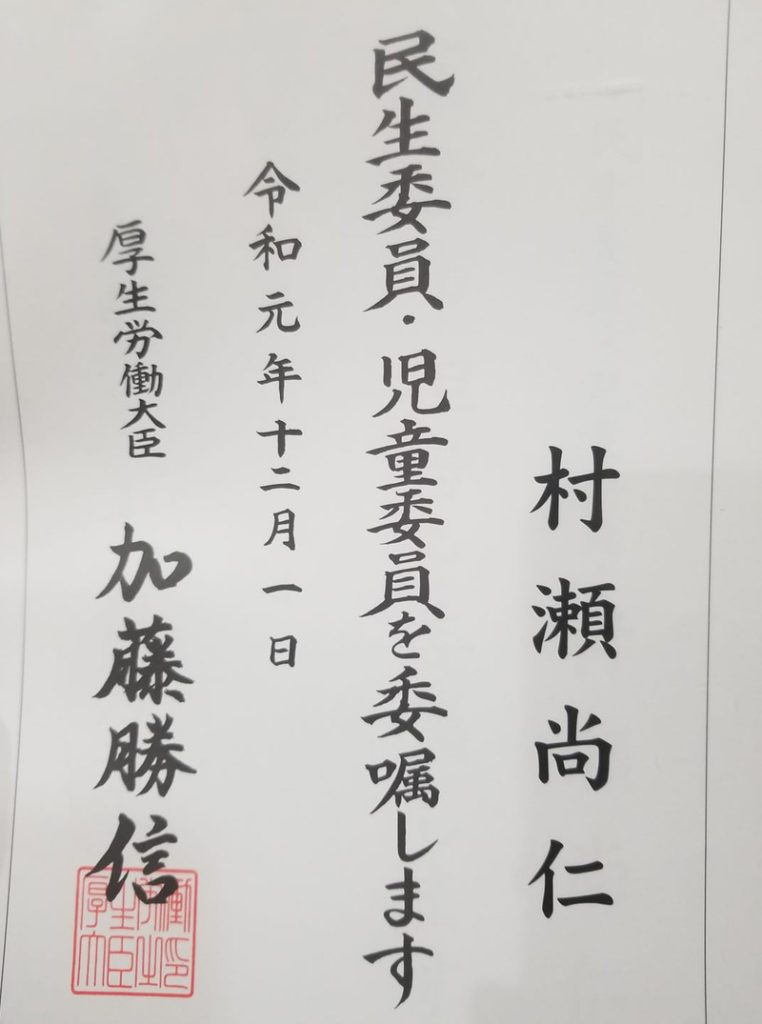 村瀬尚仁
民生委員・児童委員を委嘱します
令和元年十二月一日
厚生労働大臣 加藤勝信